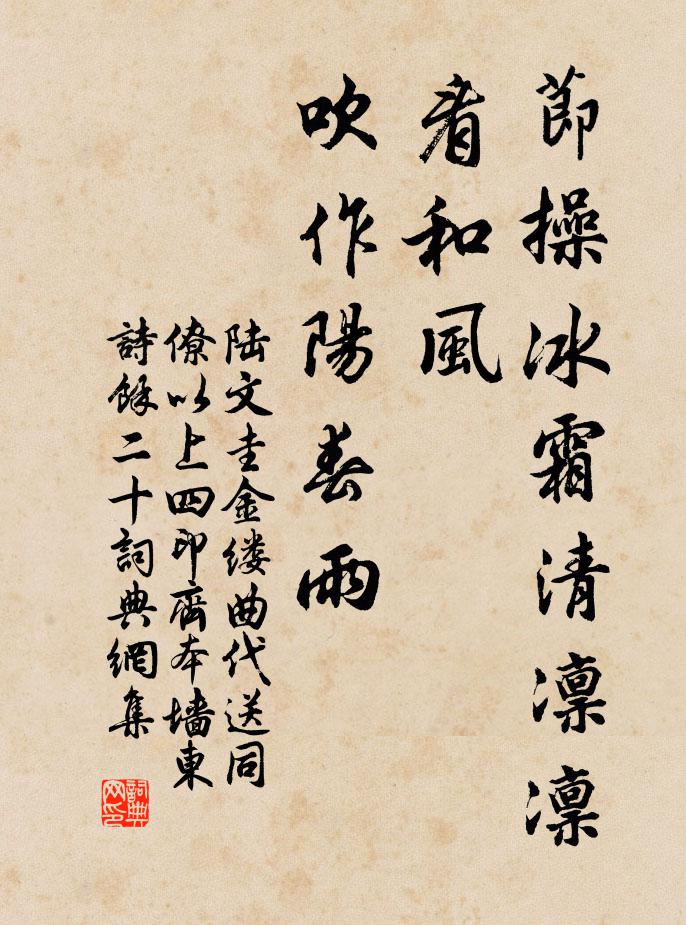 節操冰霜清凛凛
看和風
吹作陽春雨
陆文圭金缕曲代送同
僚以上四印齋本墙東
詩餘二十詞典網集
詞典网印